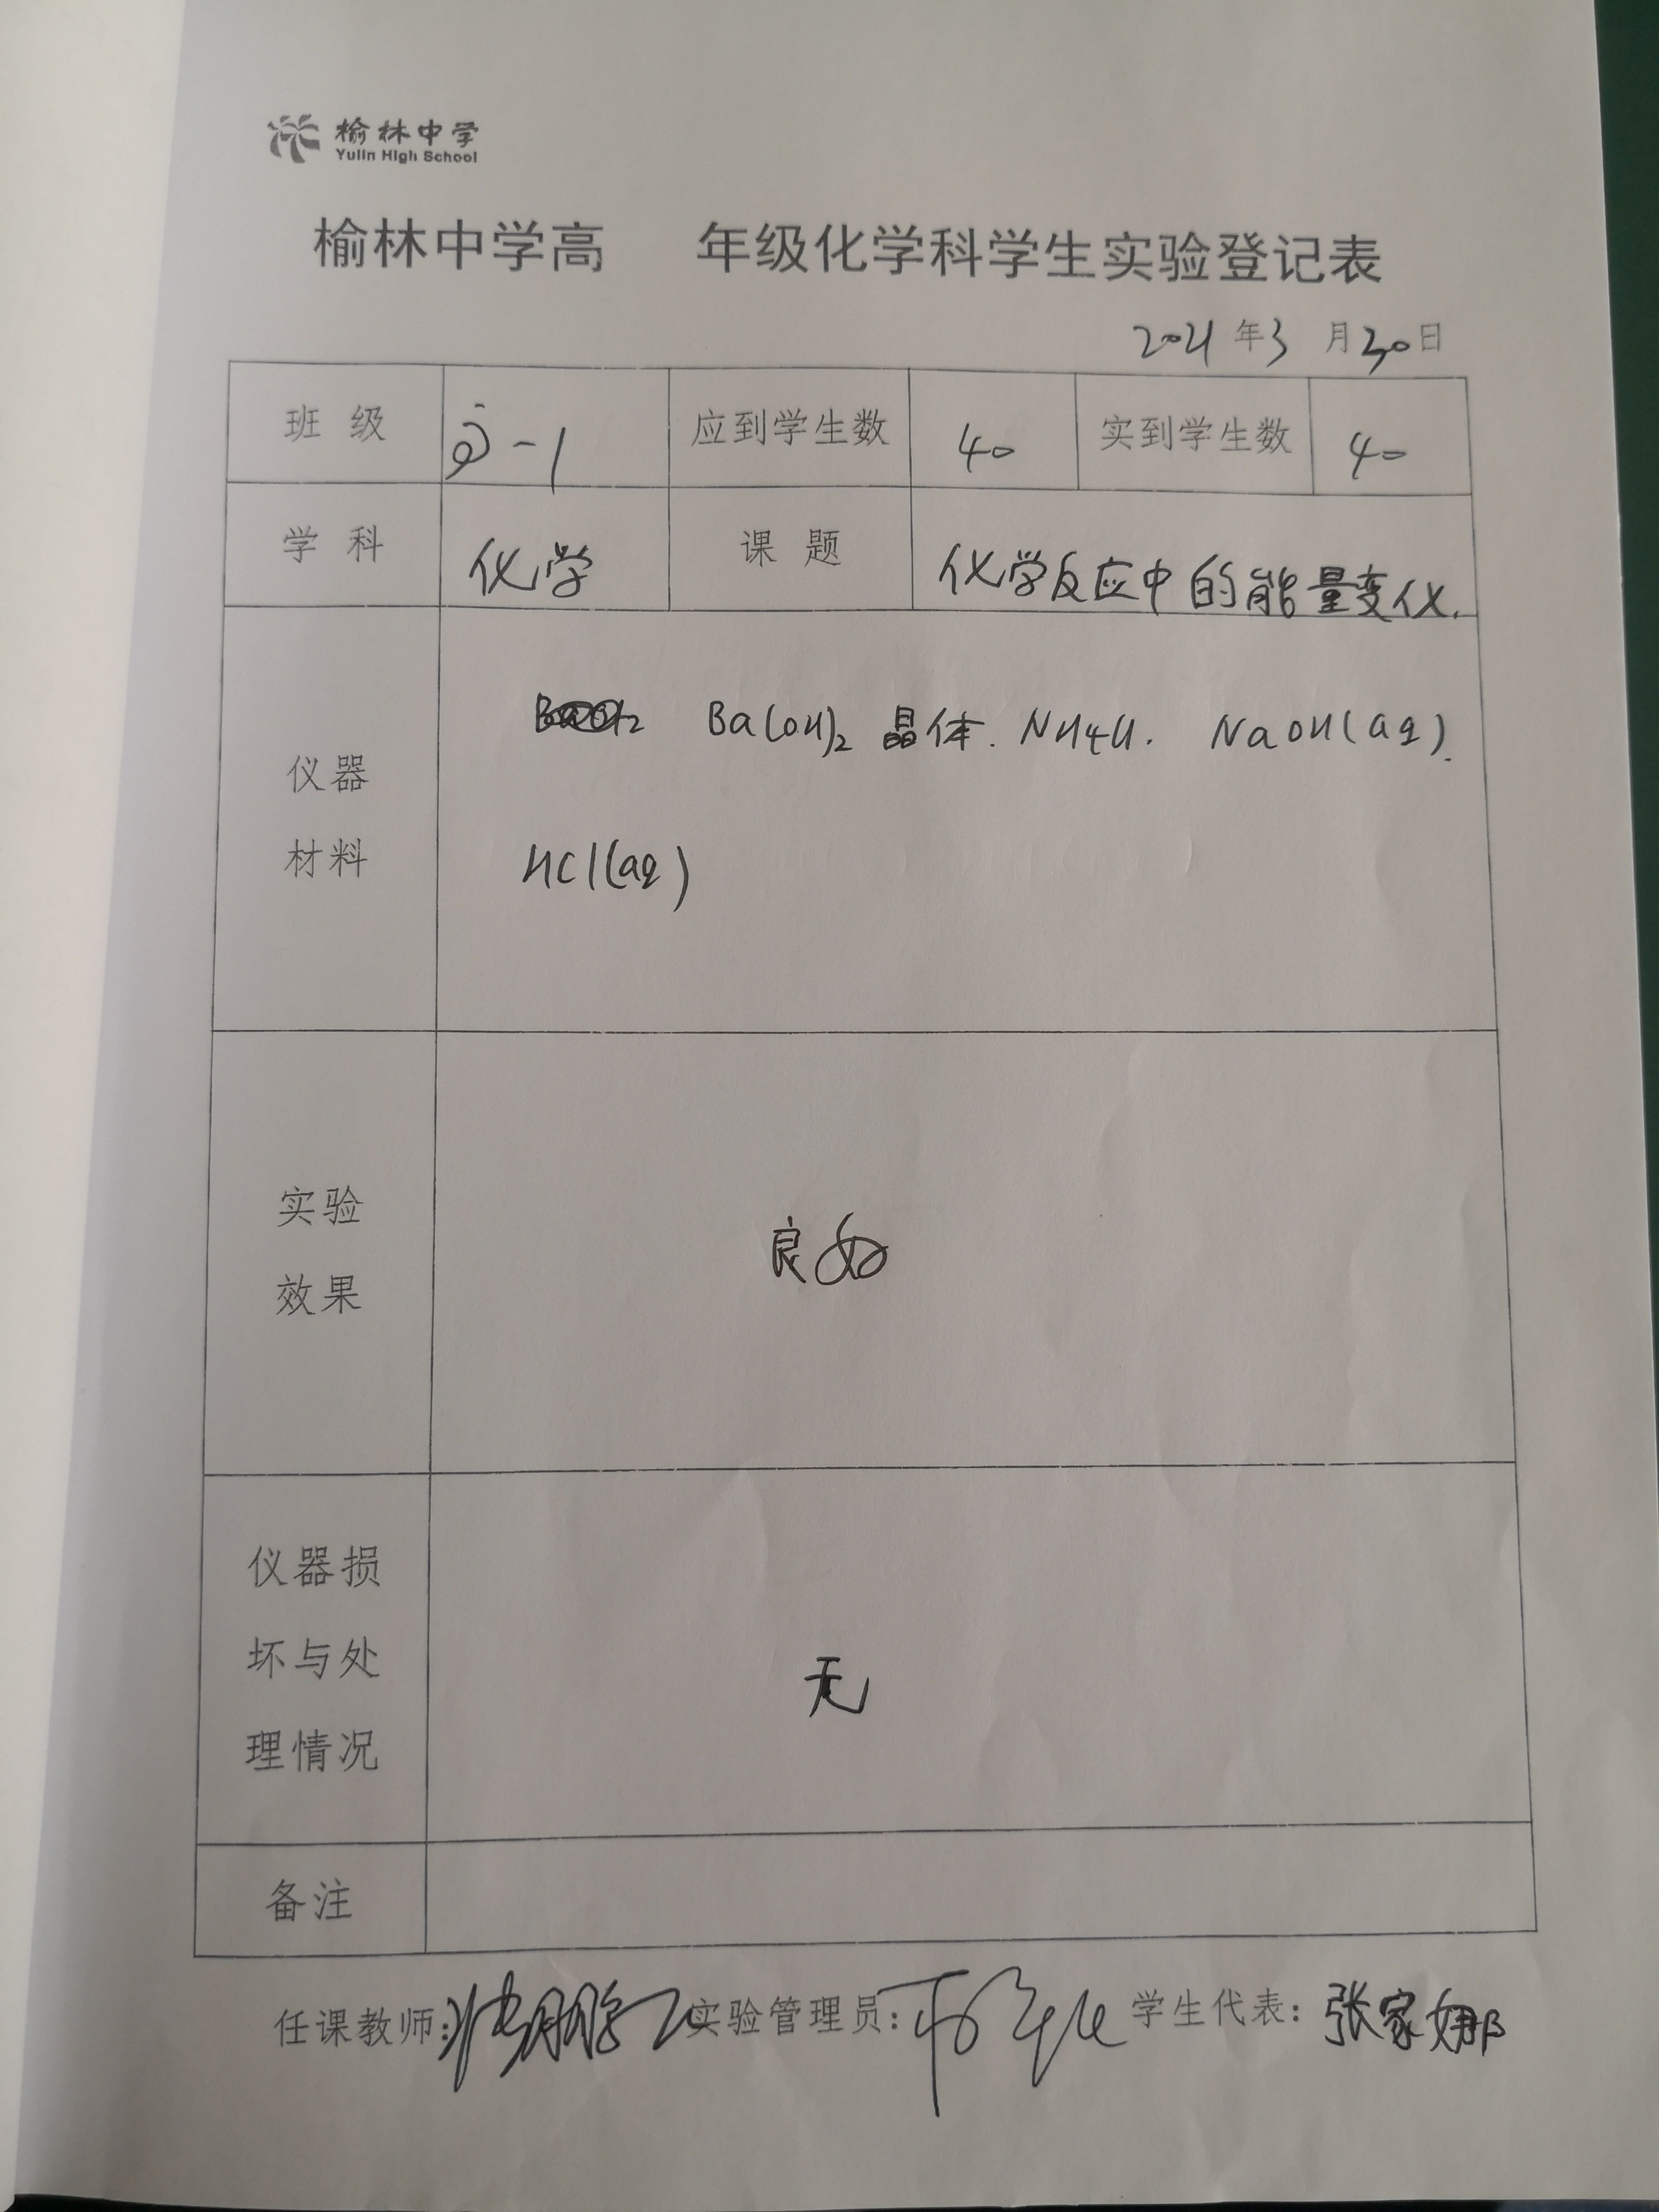 榆林中学
Yulin High School
榆林中学高 年级化学科学生实验登记表
2021年3月30日
班级 高-1 应到学生数 40 实到学生数 40
学科 化学 课题 化学反应中的能量变化.
仪器
材料
Ba(OH)2 晶体. NH4Cl. NaOH(aq).
HCl(aq)
实验
效果
良好
仪器损
坏与处
理情况
无
备注
任课教师: 实验管理员: 学生代表: 张家娜